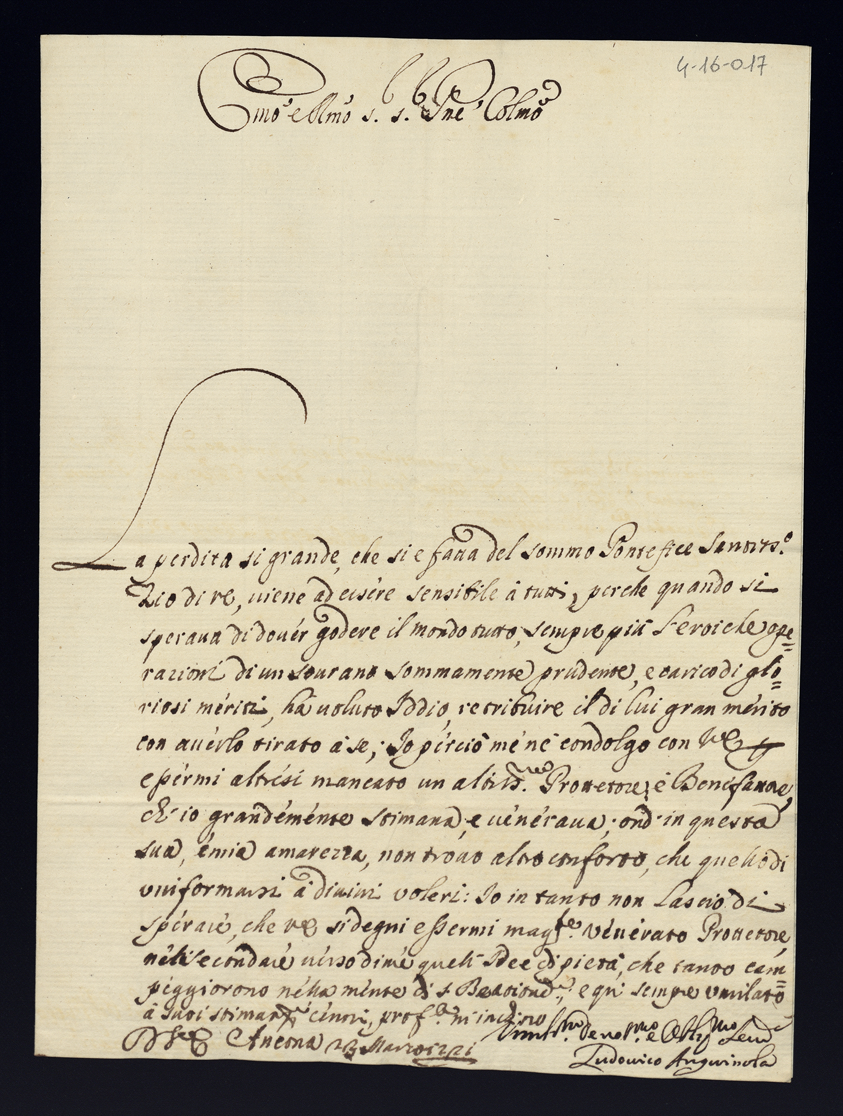 4-16-017
Emo e Rmo S. S. Pne Colmo
La perdita si grande, che si e fatta del sommo Pontefice Santiss.o
Zio di VE, viene ad essére sensibile à tutti, perche quando si
sperava di douér godere il mondo tutto, sempre più l'eroiche ope=
razioni di un sourano sommamente prudente, e carico di glo=
riosi mériti, hà voluto Iddio, retribuire il di lui gran mérito
con avérlo tirato à se; Io perciò mé né condolgo con VE
essérmi altrési mancato un altiss.mo Prottetore, è Benefattore,
ch'io grandéménte stimava, e vénérava; ond' in questa
sua, é mia amarezza, non trovo altro conforto, che quello di
vniformarsi à diuini voleri: Io in tanto non lascio di
spérare, che VE si degni essermi mag.te vénérato Prottetore,
nél secondaré vérso di mé quell' Idee di pietà, che tanto cam=
péggiorono nélla ménte di s Beatitud.e, e qui sempre umiliato
à suoi stimat.mi cénni, prof.te m'inchino
D VE Ancona 23 Marzo 1721
Umiliss.mo Deuot.mo e Obblig.mo Seru.e
Ludovico Anguissola